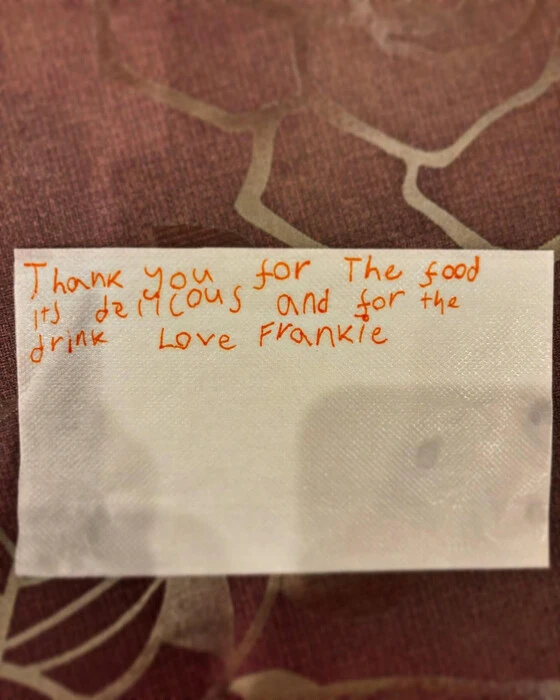 Thank you for The food
its delicous and for the
drink Love Frankie